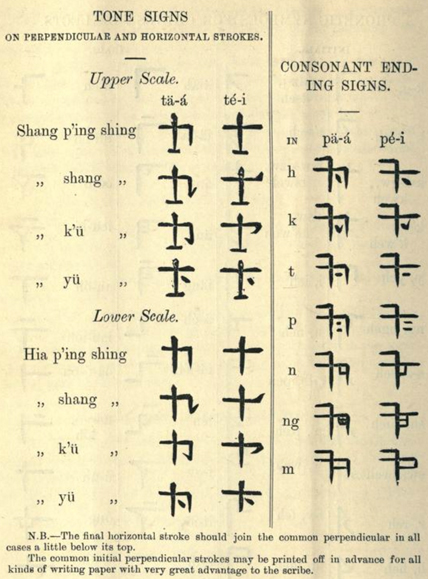 TONE SIGNS
ON PERPENDICULAR AND HORIZONTAL STROKES.
Upper Scale.
tä-á té-i
Shang p'ing shing
„ shang „
„ k'ü „
„ yü „
Lower Scale.
Hia p'ing shing
„ shang „
„ k'ü „
„ yü „
CONSONANT END-
ING SIGNS.
IN pä-á pé-i
h
k
t
p
n
ng
m
N.B.—The final horizontal stroke should join the common perpendicular in all
cases a little below its top.
The common initial perpendicular strokes may be printed off in advance for all
kinds of writing paper with very great advantage to the scribe.